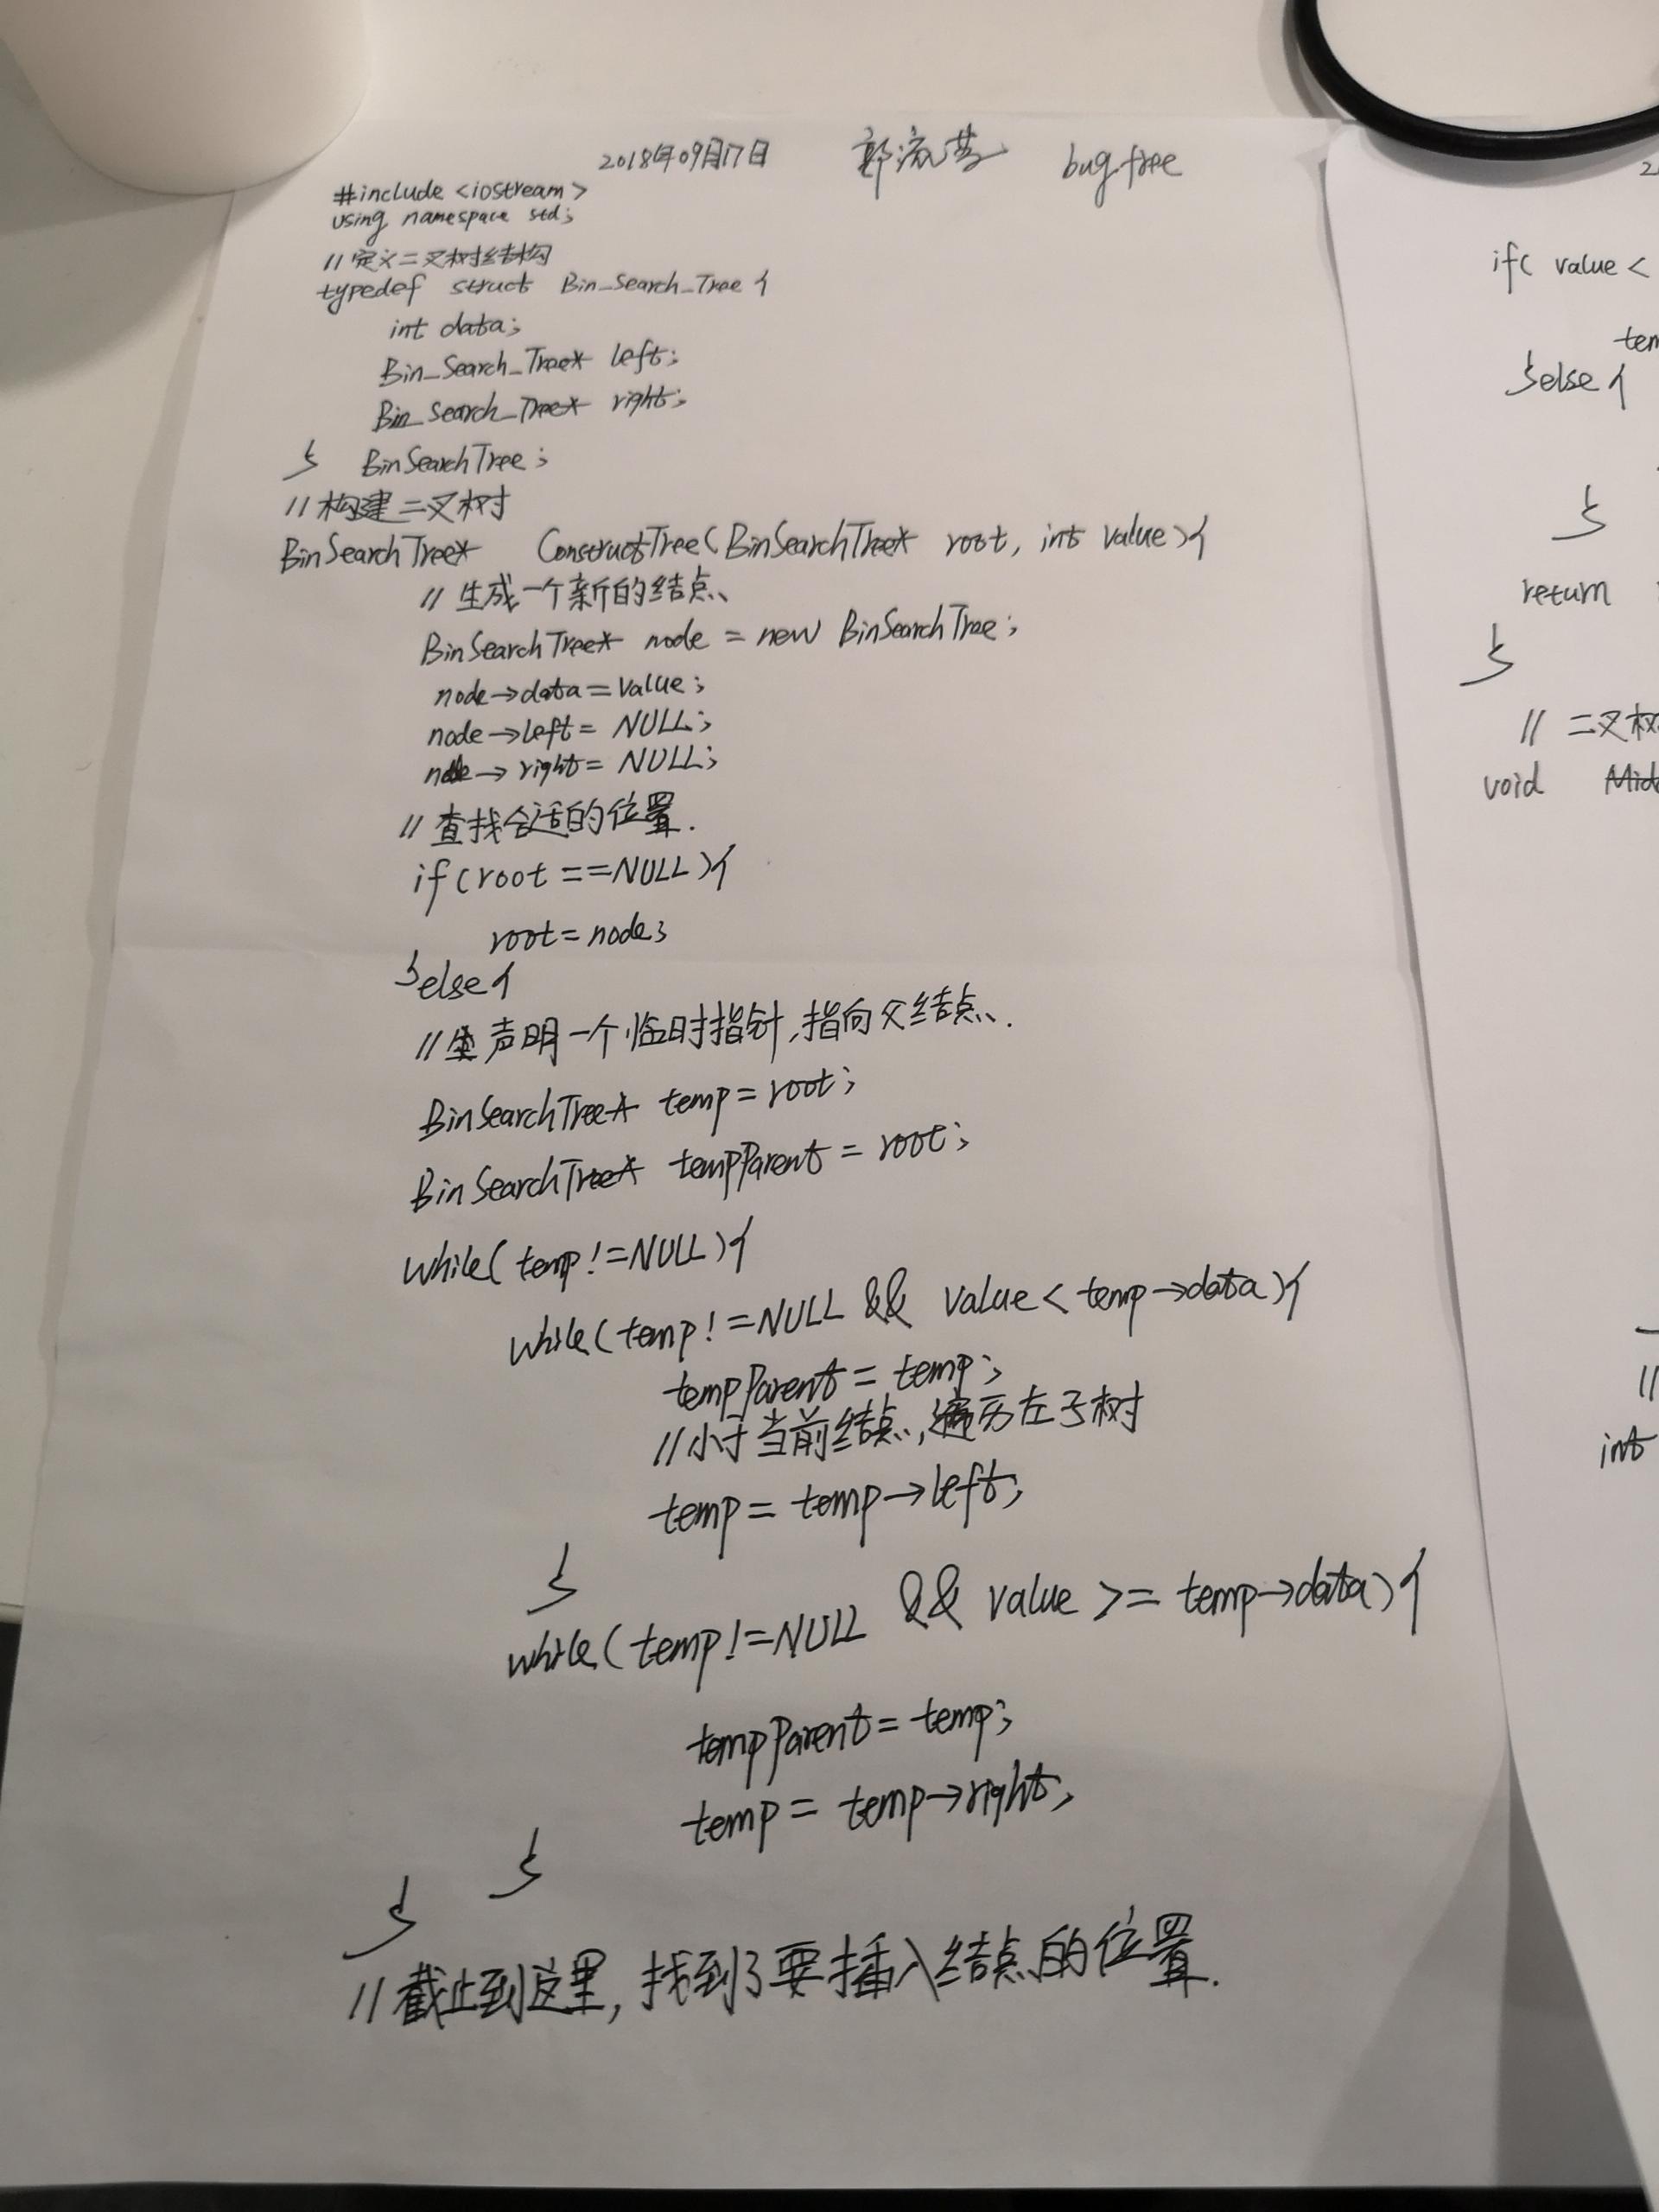 2018年09月17日 郭流芳 bug free
#include <iostream>
using namespace std;
//定义二叉树结构
typedef struct Bin_Search_Tree {
int data;
Bin_Search_Tree* left;
Bin_Search_Tree* right;
} BinSearchTree;
//构建二叉树
BinSearchTree* ConstructTree(BinSearchTree* root, int value){
//生成一个新的结点
BinSearchTree* node = new BinSearchTree;
node→data=value;
node→left= NULL;
node→right= NULL;
//查找合适的位置.
if(root ==NULL){
root=node;
}else{
//声明一个临时指针,指向父结点.
BinSearchTree* temp=root;
BinSearchTree* tempParent = root;
while(temp!=NULL){
while(temp!=NULL && value< temp→data){
tempParent=temp;
//小于当前结点,遍历左子树
temp= temp→left;
}
while(temp!=NULL && value >= temp→data){
tempParent=temp;
temp= temp→right;
}
}
//截止到这里,找到了要插入结点的位置.
if( value <
}else{
}
return
}
// 二叉
void
//
int